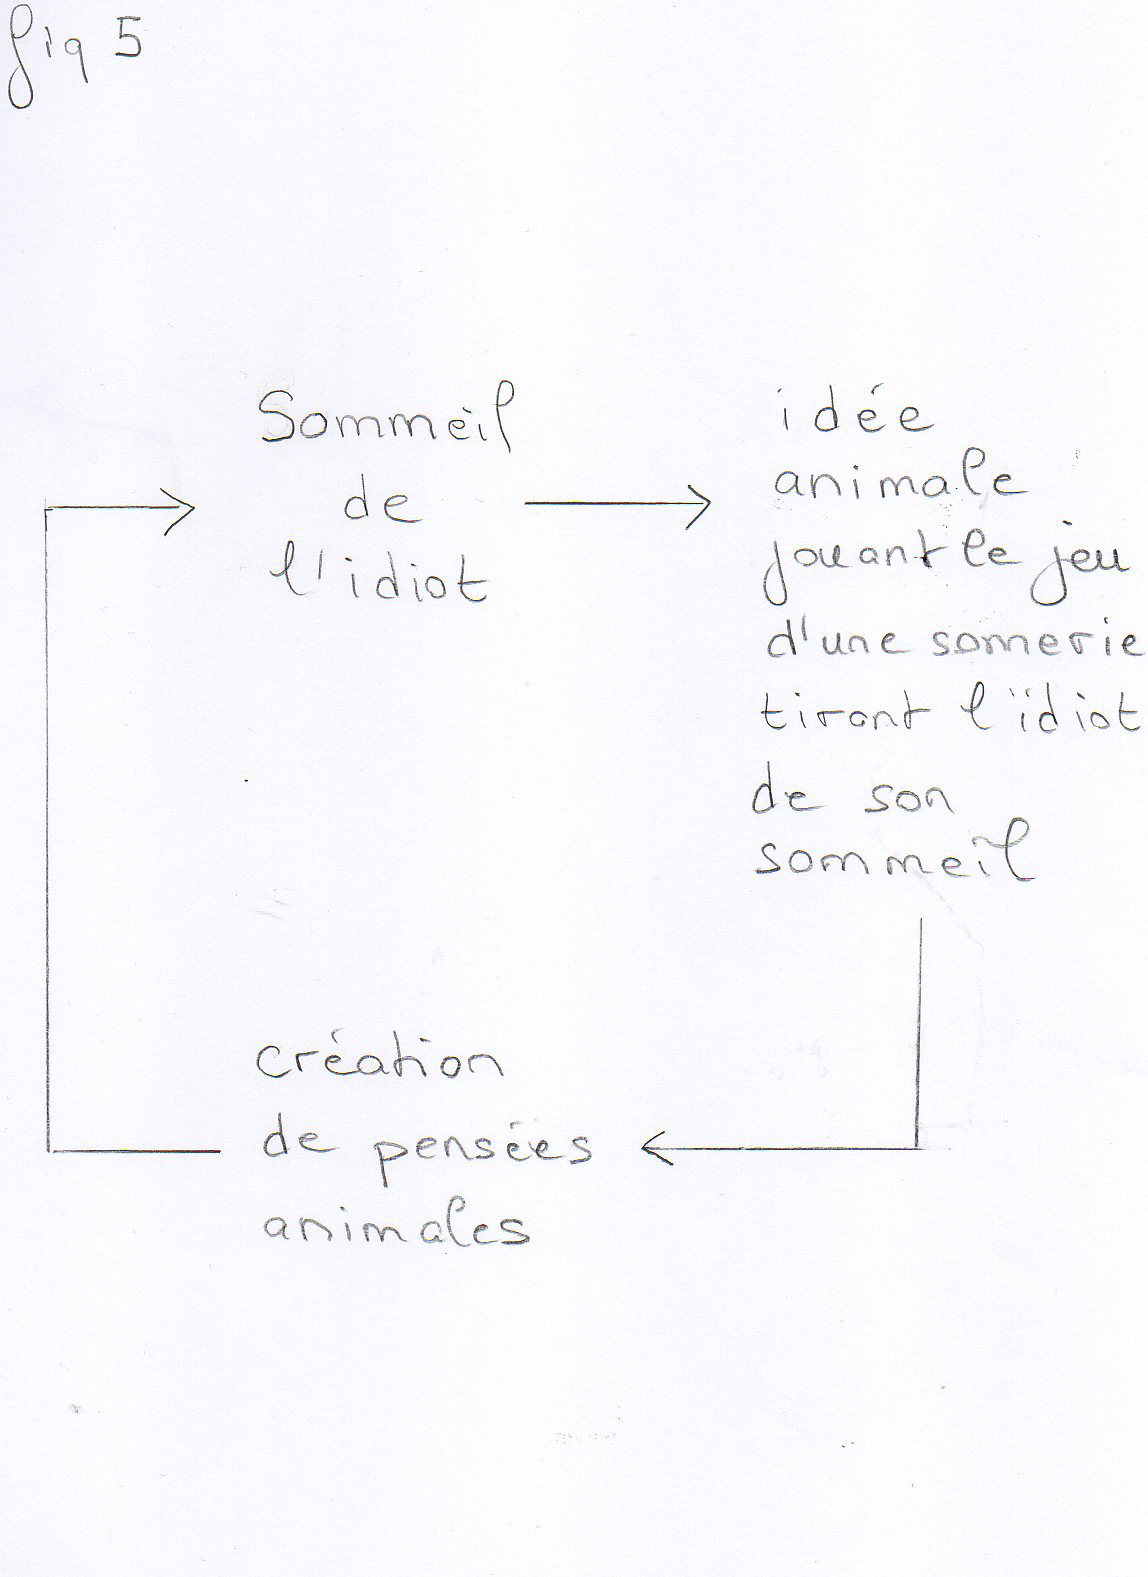 fig 5
Sommeil
de
l'idiot
idée
animale
jouant le jeu
d'une sonnerie
tirant l'idiot
de son
sommeil
création
de pensées
animales